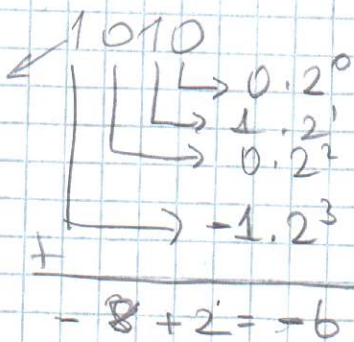 1010
0.2⁰
1.2¹
0.2²
-1.2³
+
- 8 + 2 = -6